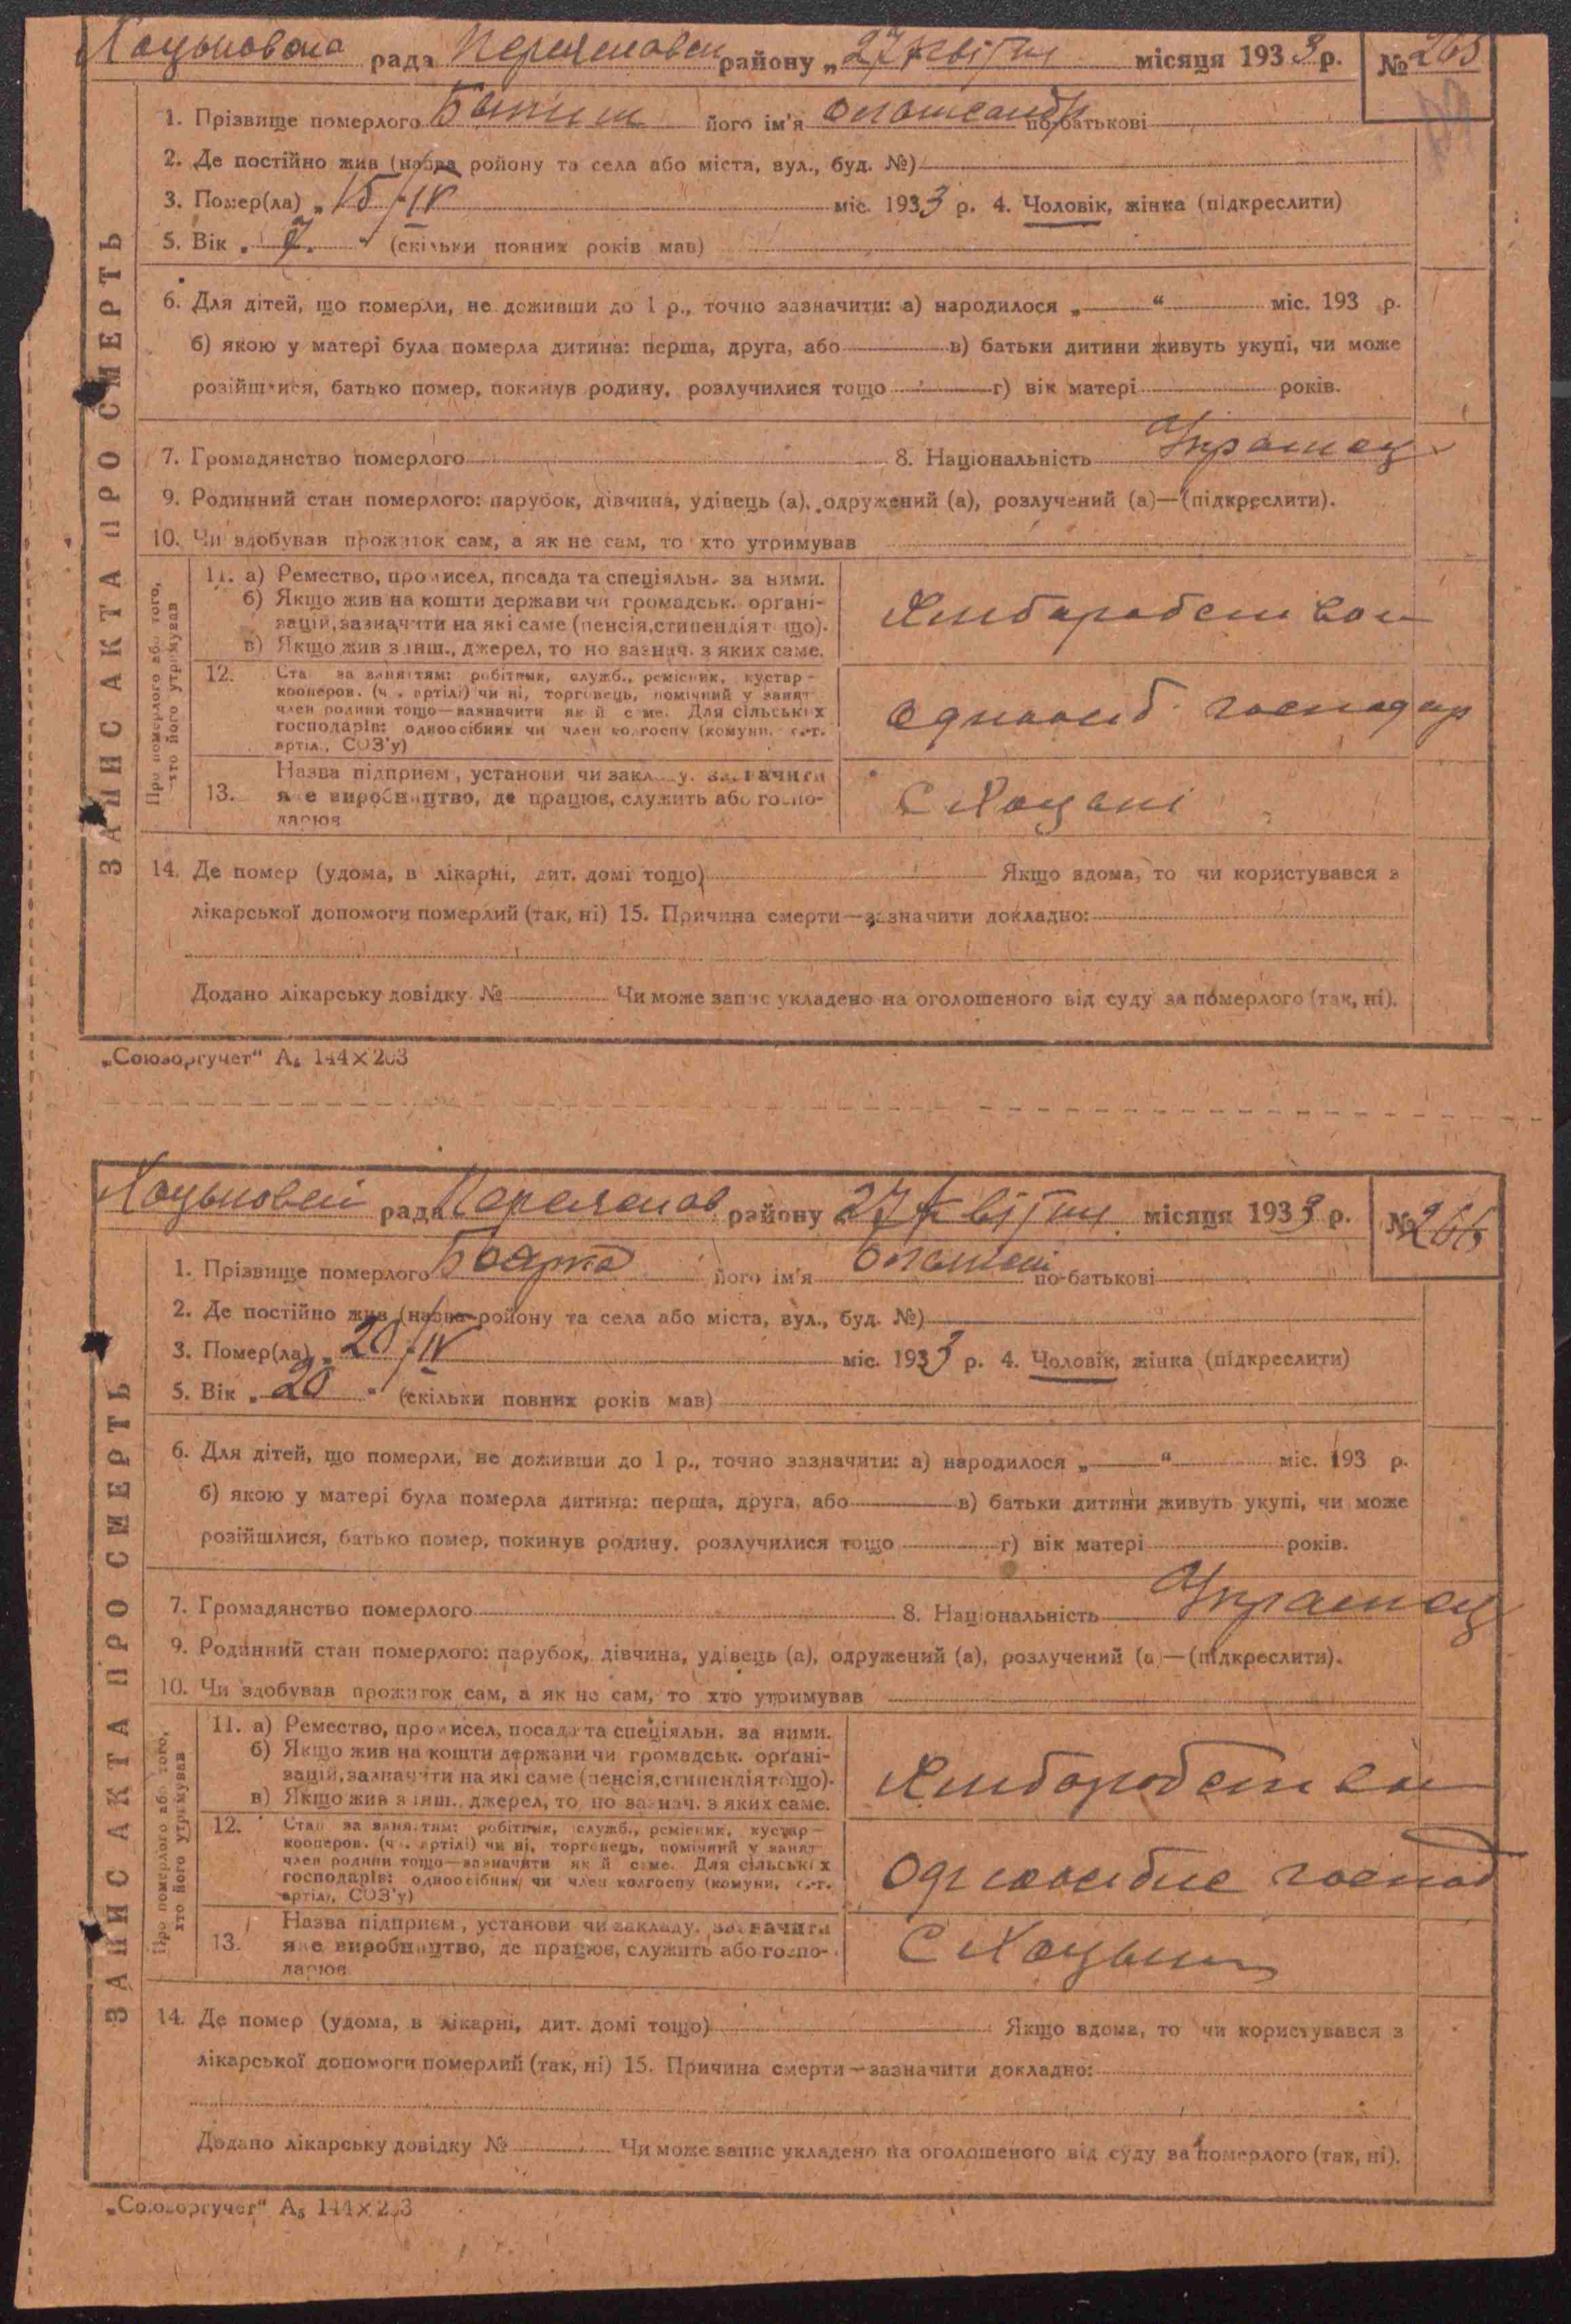 рада району „27 квітня місяця 1933 р. № 265
1. Прізвище померлого його ім'я Олександр по-батькові
2. Де постійно жив (назва ройону та села або міста, вул., буд. №)
3. Помер(ла) „15/IV міс. 1933 р. 4. Чоловік, жінка (підкреслити)
5. Вік „ “ (скільки повних років мав)
6. Для дітей, що померли, не доживши до 1 р., точно зазначити: а) народилося „ “ міс. 193 р.
б) якою у матері була померла дитина: перша, друга, або в) батьки дитини живуть укупі, чи може
розійшлися, батько помер, покинув родину, розлучилися тощо г) вік матері років.
7. Громадянство померлого 8. Національність Українец
9. Родинний стан померлого: парубок, дівчина, удівець (а), одружений (а), розлучений (а)—(підкреслити).
10. Чи здобував прожиток сам, а як не сам, то хто утримував
ЗАПИС АКТА ПРО СМЕРТЬ
Про померлого або того,
хто його утримував
11. а) Ремество, промисел, посада та спеціяльн. за ними.
б) Якщо жив на кошти держави чи громадськ. органі-
зацій, зазначити на які саме (пенсія, стипендіят що).
в) Якщо жив з інш., джерел, то но зазнач. з яких саме.
Хлібороб
12. Стан за заняттям: робітник, служб., ремісник, кустар—
кооперов. (чл. артілі) чи ні, торговець, помічний у занят
член родини тощо—зазначити як й саме. Для сільських
господарів: одноосібник чи член колгоспу (комуни, с.-г.
артіл., СОЗ'у)
Одноосіб господар
13. Назва підприєм., установи чи закладу, зазначити
яке виробництво, де працює, служить або госпо-
дарює
С Хоцьки
14. Де помер (удома, в лікарні, дит. домі тощо) Якщо вдома, то чи користувався з
лікарської допомоги померлий (так, ні) 15. Причина смерти—зазначити докладно:
Додано лікарську довідку № Чи може запис укладено на оголошеного від суду за померлого (так, ні).
„Союзоргучет“ А₅ 144×203
рада району 27 квітня місяця 1933 р. № 266
1. Прізвище померлого його ім'я по-батькові
2. Де постійно жив (назва ройону та села або міста, вул., буд. №)
3. Помер(ла) „20/IV міс. 1933 р. 4. Чоловік, жінка (підкреслити)
5. Вік „20“ (скільки повних років мав)
6. Для дітей, що померли, не доживши до 1 р., точно зазначити: а) народилося „ “ міс. 193 р.
б) якою у матері була померла дитина: перша, друга, або в) батьки дитини живуть укупі, чи може
розійшлися, батько помер, покинув родину, розлучилися тощо г) вік матері років.
7. Громадянство померлого 8. Національність Українец
9. Родинний стан померлого: парубок, дівчина, удівець (а), одружений (а), розлучений (а)—(підкреслити).
10. Чи здобував прожиток сам, а як не сам, то хто утримував
ЗАПИС АКТА ПРО СМЕРТЬ
Про померлого або того,
хто його утримував
11. а) Ремество, промисел, посада та спеціяльн. за ними.
б) Якщо жив на кошти держави чи громадськ. органі-
зацій, зазначити на які саме (пенсія, стипендіят ощо).
в) Якщо жив з інш., джерел, то но зазнач. з яких саме.
Хлібороб
12. Стан за заняттям: робітник, служб., ремісник, кустар—
кооперов. (чл. артілі) чи ні, торговець, помічний у занят
член родини тощо—зазначити як й саме. Для сільських
господарів: одноосібник чи член колгоспу (комуни, с.-г.
артіл., СОЗ'у)
Одноосібне господ
13. Назва підприєм., установи чи закладу, зазначити
яке виробництво, де працює, служить або госпо-
дарює
С Хоцьки
14. Де помер (удома, в лікарні, дит. домі тощо) Якщо вдома, то чи користувався з
лікарської допомоги померлий (так, ні) 15. Причина смерти—зазначити докладно:
Додано лікарську довідку № Чи може запис укладено на оголошеного від суду за померлого (так, ні).
„Союзоргучет“ А₅ 144×203